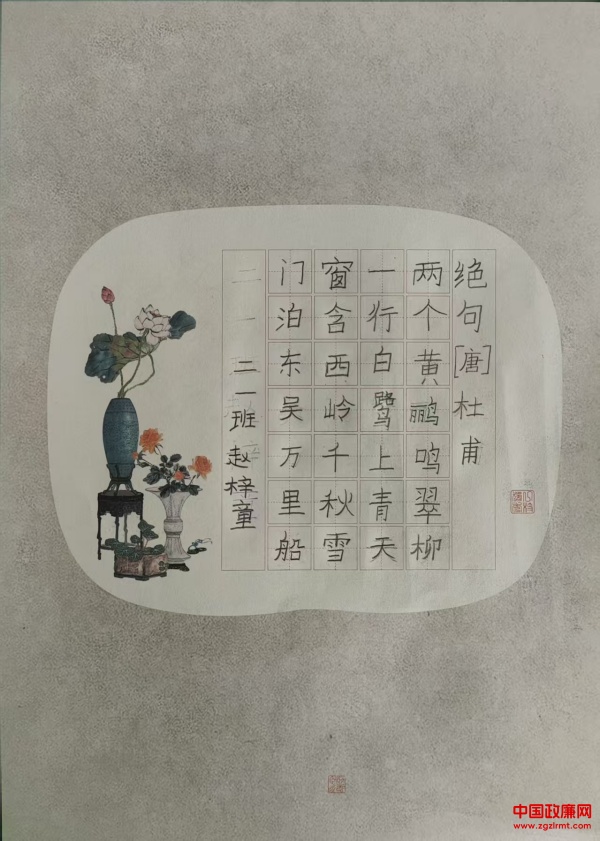 绝句[唐]杜甫
两个黄鹂鸣翠柳
一行白鹭上青天
窗含西岭千秋雪
门泊东吴万里船
二一班赵梓童
中国政廉网
www.zgzlrmt.com